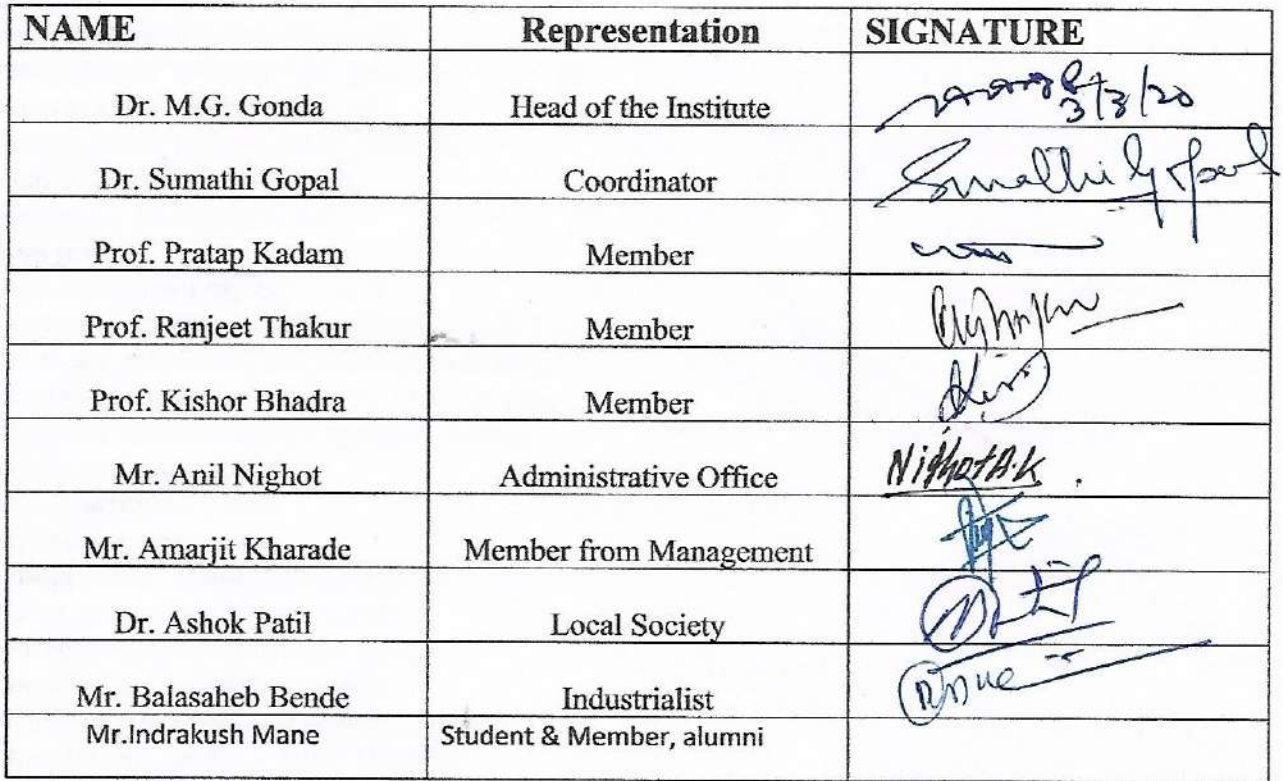 NAME Representation SIGNATURE
Dr. M.G. Gonda Head of the Institute 3/3/20
Dr. Sumathi Gopal Coordinator Sumathi Gopal
Prof. Pratap Kadam Member
Prof. Ranjeet Thakur Member
Prof. Kishor Bhadra Member
Mr. Anil Nighot Administrative Office Nighot A.K.
Mr. Amarjit Kharade Member from Management
Dr. Ashok Patil Local Society
Mr. Balasaheb Bende Industrialist
Mr.Indrakush Mane Student & Member, alumni